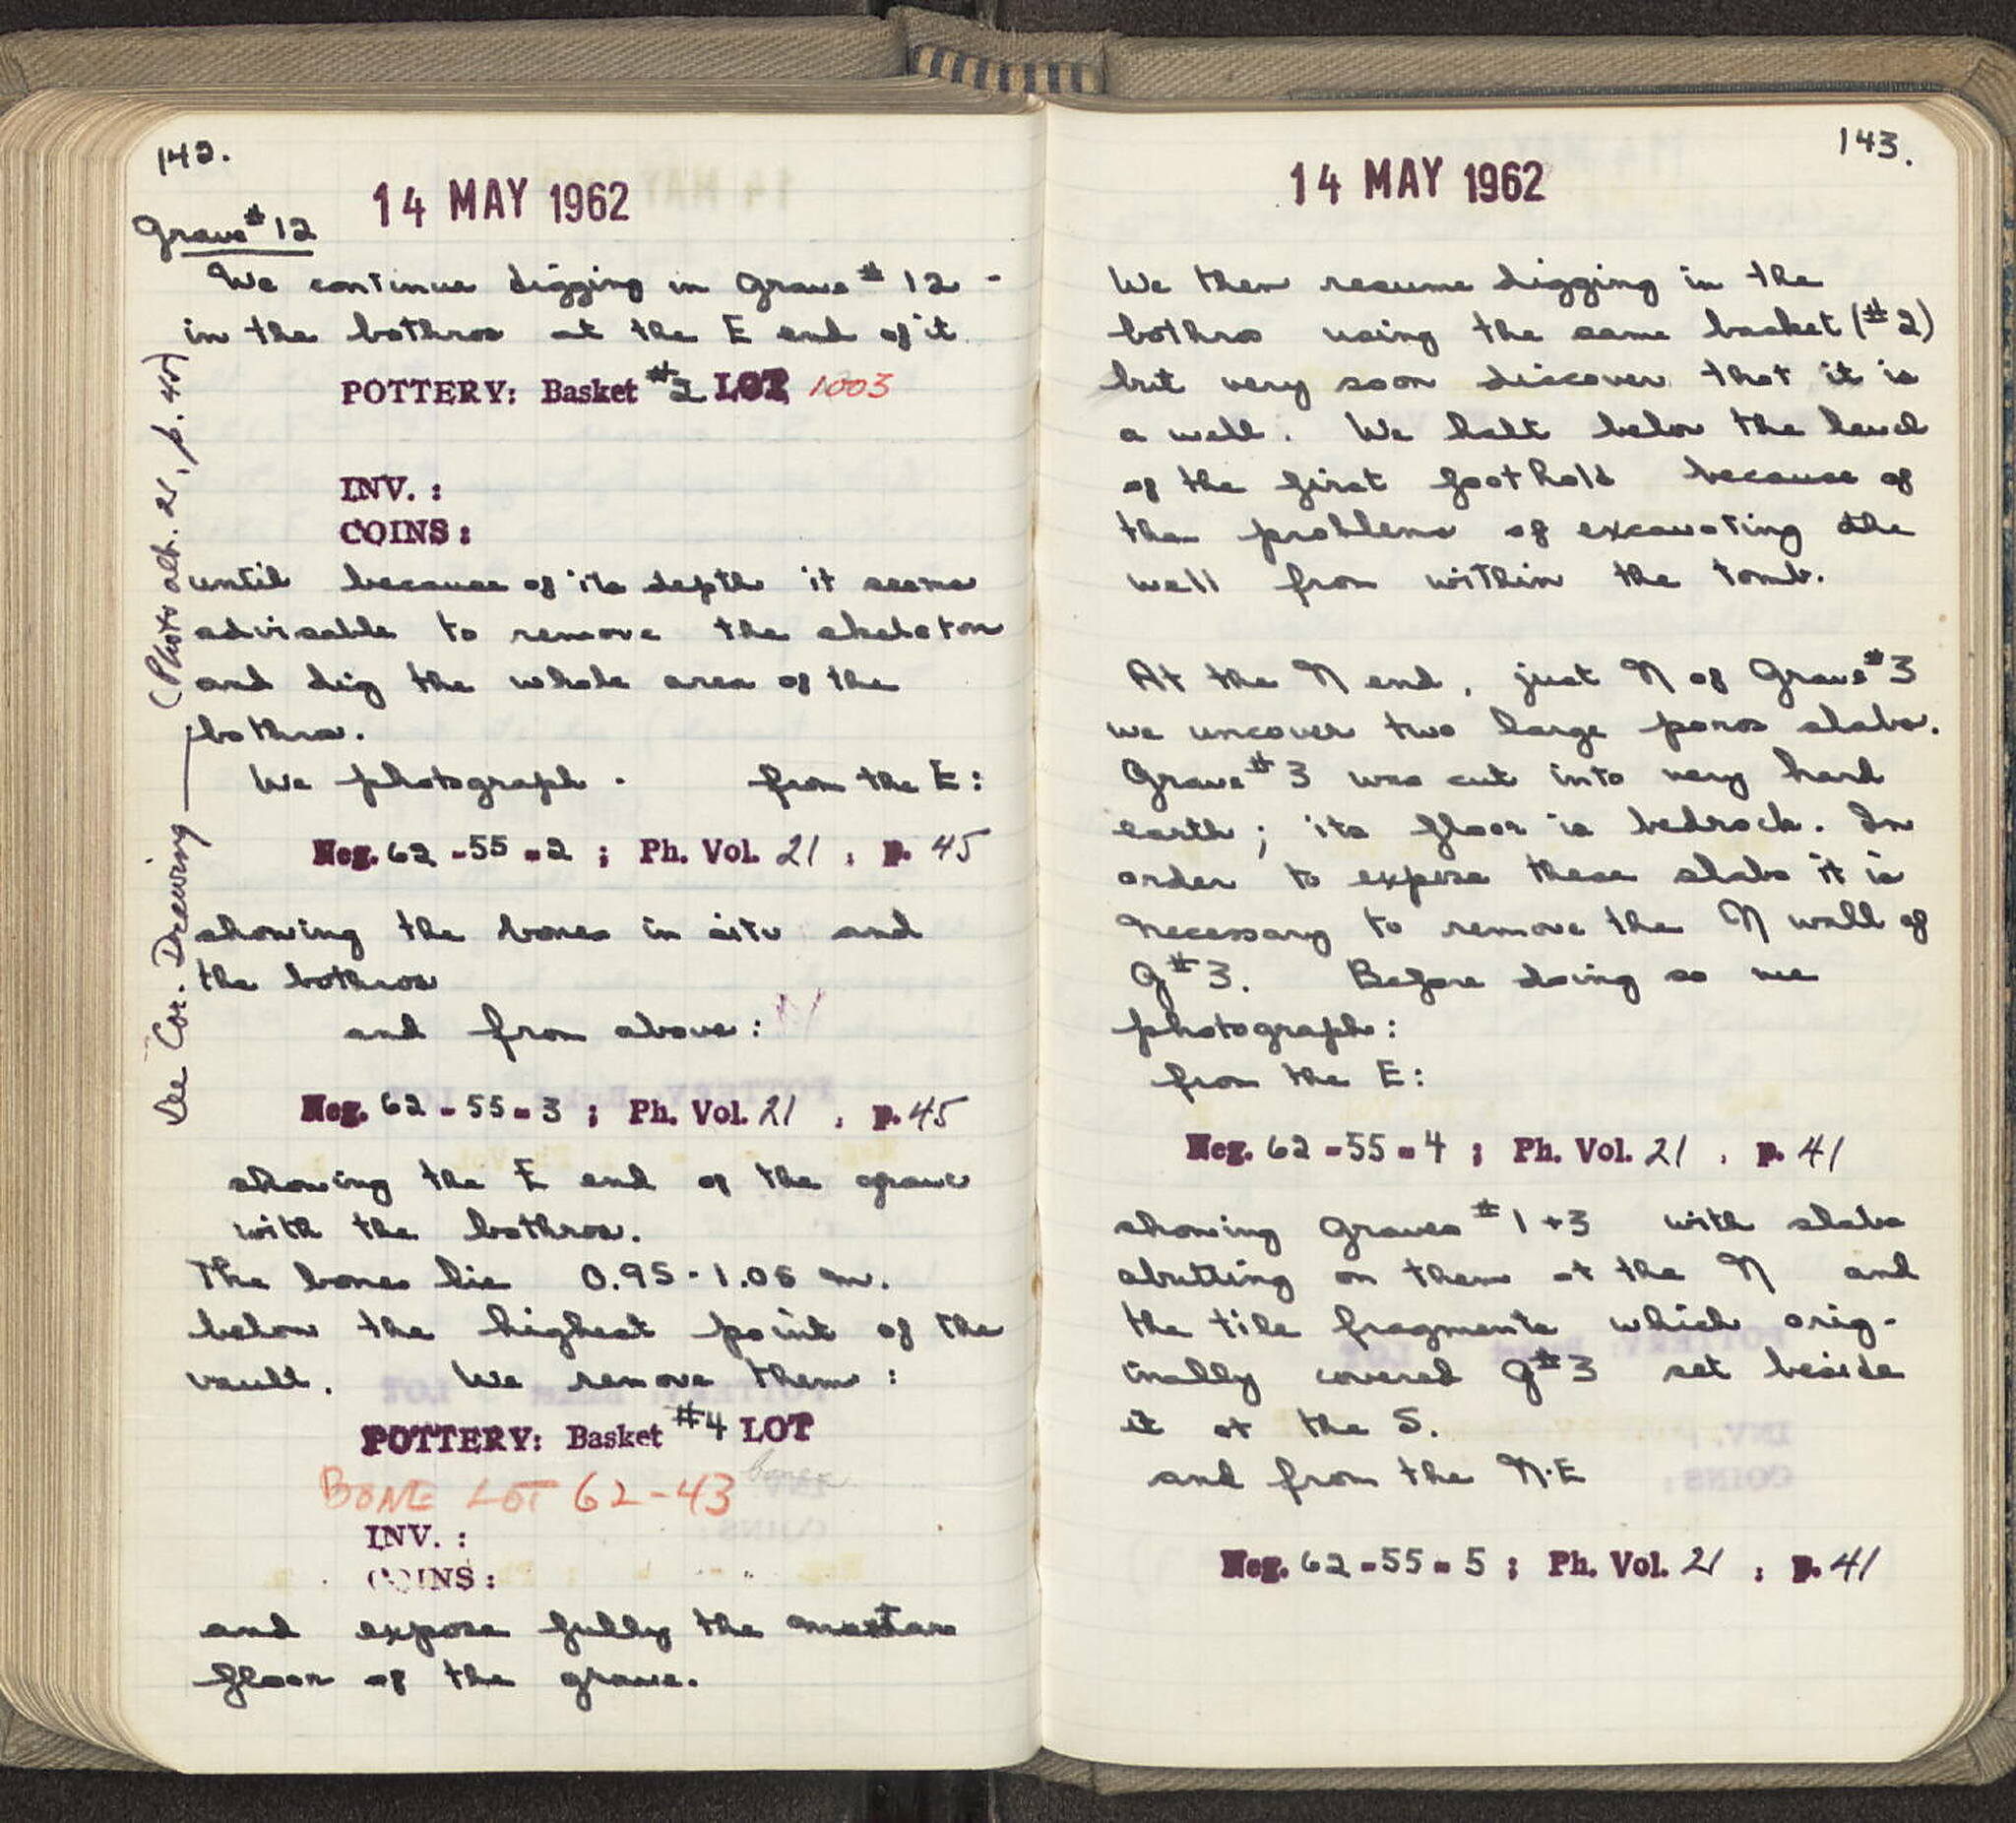 142.
14 MAY 1962
Grave #12
We continue digging in Grave #12 -
in the bothros at the E end of it
POTTERY: Basket #2 LOT 1003
INV. :
COINS :
until because of its depth it seems
advisable to remove the skeleton
and dig the whole area of the
bothros.
We photograph - from the E:
Neg. 62-55-2 ; Ph. Vol. 21 , p. 45
showing the bones in situ and
the bothros
and from above :
Neg. 62-55-3 ; Ph. Vol. 21 , p. 45
showing the E end of the grave
with the bothros.
The bones lie 0.95-1.05 m.
below the highest point of the
vault. We remove them :
POTTERY: Basket #4 LOT
bones
BONE LOT 62-43
INV. :
COINS :
and expose fully the mortar
floor of the grave.
See Cor. Drawing — (Photo alb. 21, p. 45)
143.
14 MAY 1962
We then resume digging in the
bothros using the same basket (#2)
but very soon discover that it is
a well. We halt below the level
of the first foothold because of
the problems of excavating the
well from within the tomb.
At the N end, just N of Grave #3
we uncover two large poros slabs.
Grave #3 was cut into very hard
earth; its floor is bedrock. In
order to expose these slabs it is
necessary to remove the N wall of
G #3. Before doing so we
photograph:
from the E:
Neg. 62-55-4 ; Ph. Vol. 21 , p. 41
showing Graves #1+3 with slabs
abutting on them at the N and
the tile fragments which orig-
inally covered G #3 set beside
it at the S.
and from the N.E
Neg. 62-55-5 ; Ph. Vol. 21 , p. 41